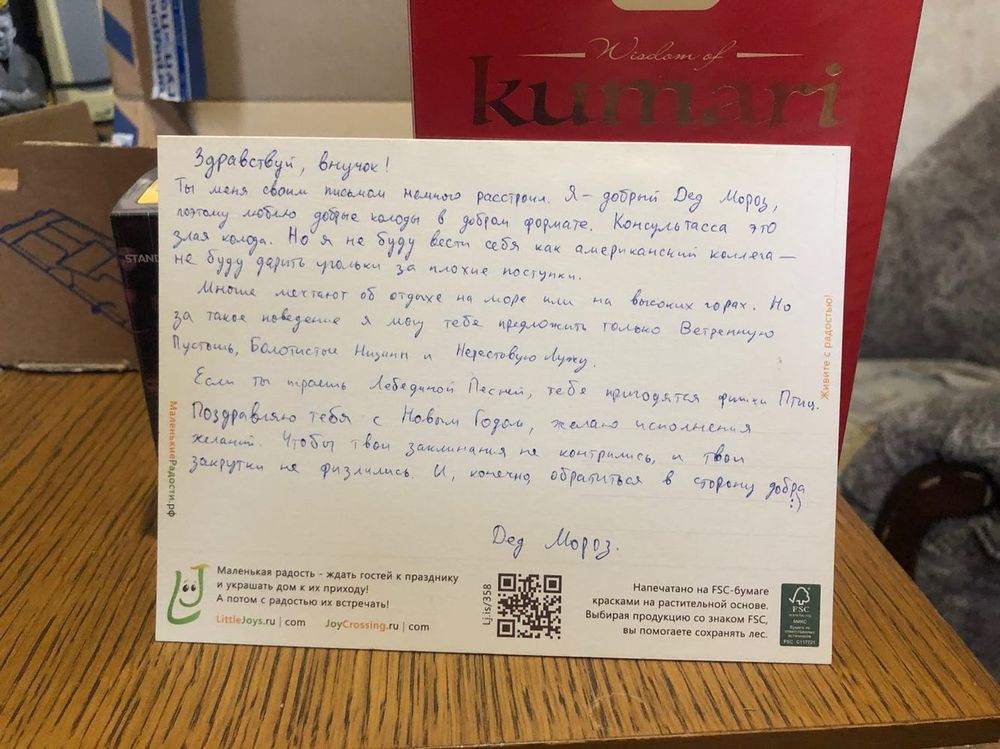 Wisdom of
kumari
STAND
Здравствуй, внучок!
Ты меня своим письмом немного расстроил. Я – добрый Дед Мороз,
поэтому люблю добрые колоды в добром формате. Консультасса это
злая колода. Но я не буду вести себя как американский коллега —
не буду дарить угольки за плохие поступки.
Многие мечтают об отдыхе на море или на высоких горах. Но
за такое поведение я могу тебе предложить только Ветренную
Пустошь, Болотистые Низины и Нерестовую Лужу.
Если ты играешь Лебединой Песней, тебе пригодятся фишки Птиц.
Поздравляю тебя с Новым Годом, желаю исполнения
желаний. Чтобы твои заклинания не контрились, и твои
закрутки не физлились. И, конечно, обратиться в сторону добра
:)
Дед Мороз.
МаленькиеРадости.рф
Живите с радостью!
Маленькая радость - ждать гостей к празднику
и украшать дом к их приходу!
А потом с радостью их встречать!
LittleJoys.ru | com JoyCrossing.ru | com
Lj.is/358
Напечатано на FSC-бумаге
красками на растительной основе.
Выбирая продукцию со знаком FSC,
вы помогаете сохранять лес.
FSC
МИКС